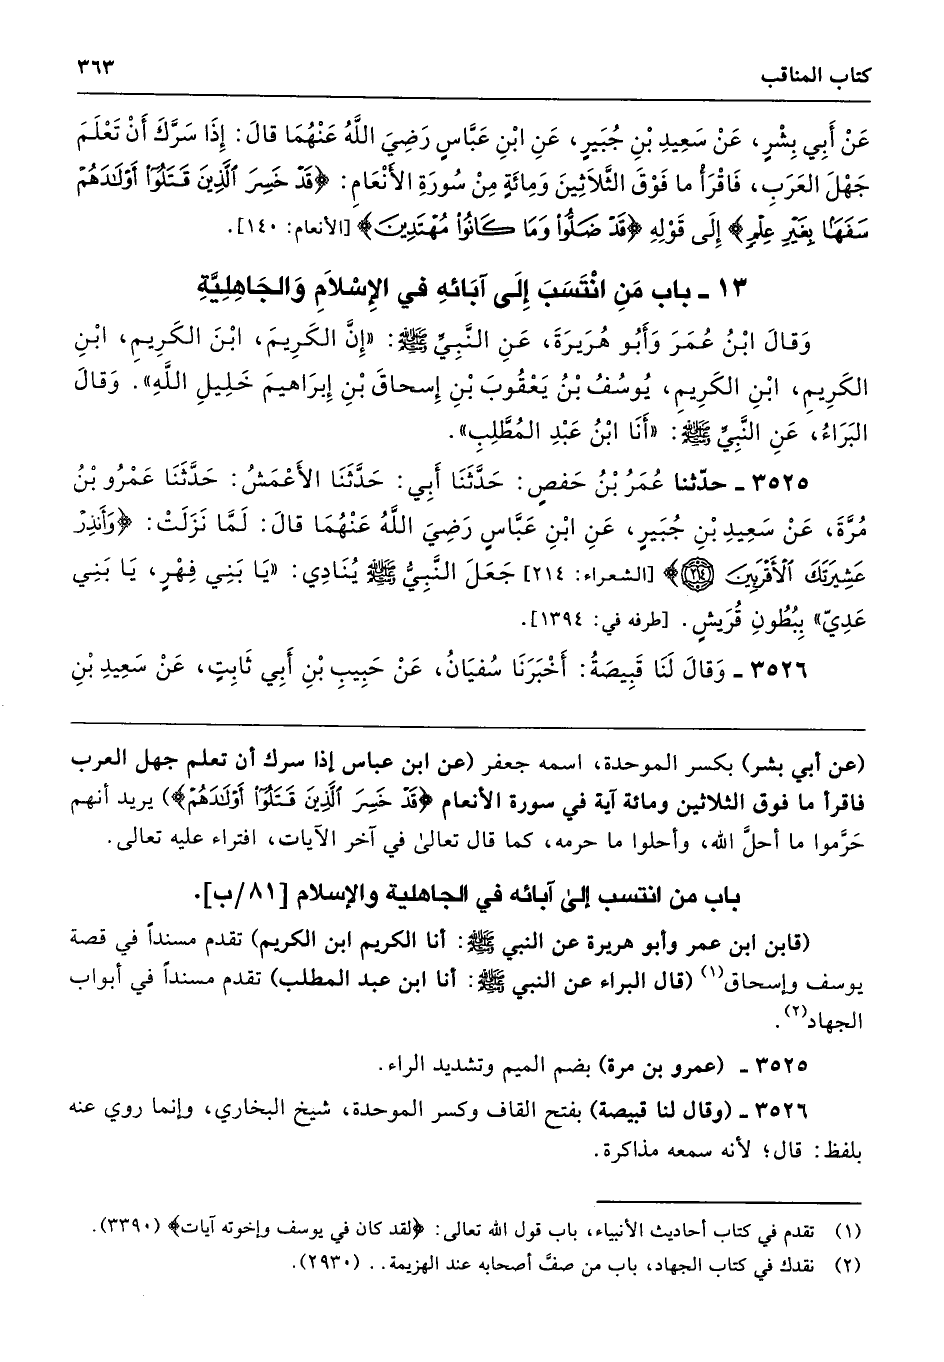 كتاب المناقب ٣٦٣
عَنْ أَبِي بِشْرٍ، عَنْ سَعِيدِ بْنِ جُبَيرٍ، عَنِ ابْنِ عَبَّاسٍ رَضِيَ اللَّهُ عَنْهُمَا قالَ: إِذَا سَرَّكَ أَنْ تَعْلَمَ
جَهْلَ العَرَبِ، فَاقْرَأْ ما فَوْقَ الثَّلاَثِينَ وَمِائَةٍ مِنْ سُورَةِ الأَنْعَامِ: ﴿قَدْ خَسِرَ ٱلَّذِينَ قَتَلُوٓاْ أَوْلَٰدَهُمْ
سَفَهًۢا بِغَيْرِ عِلْمٍ﴾ إِلَى قَوْلِهِ ﴿قَدْ ضَلُّواْ وَمَا كَانُواْ مُهْتَدِينَ﴾ [الأنعام: ١٤٠].
١٣ ـ باب مَنِ انْتَسَبَ إِلَى آبَائهِ في الإِسْلاَمِ وَالجَاهِلِيَّةِ
وَقالَ ابْنُ عُمَرَ وَأَبُو هُرَيرَةَ، عَنِ النَّبِيِّ ﷺ: «إِنَّ الكَرِيمَ، ابْنَ الكَرِيمِ، ابْنِ
الكَرِيمِ، ابْنِ الكَرِيمِ، يُوسُفُ بْنُ يَعْقُوبَ بْنِ إِسحاقَ بْنِ إِبرَاهيمَ خَلِيلِ اللَّهِ». وَقالَ
البَرَاءُ، عَنِ النَّبِيِّ ﷺ: «أَنَا ابْنُ عَبْدِ المُطَّلِبِ».
٣٥٢٥ ـ حدّثنا عُمَرُ بْنُ حَفصٍ: حَدَّثَنَا أَبِي: حَدَّثَنَا الأَعْمَشُ: حَدَّثَنَا عَمْرُو بْنُ
مُرَّةَ، عَنْ سَعِيدِ بْنِ جُبَيرٍ، عَنِ ابْنِ عَبَّاسٍ رَضِيَ اللَّهُ عَنْهُمَا قالَ: لَمَّا نَزَلَتْ: ﴿وَأَنذِرْ
عَشِيرَتَكَ ٱلْأَقْرَبِينَ ٢١٤﴾ [الشعراء: ٢١٤] جَعَلَ النَّبِيُّ ﷺ يُنَادِي: «يَا بَنِي فِهْرٍ، يَا بَنِي
عَدِيّ» بِبُطُونِ قُرَيشٍ. [طرفه في: ١٣٩٤].
٣٥٢٦ ـ وَقالَ لَنَا قَبِيصَةُ: أَخْبَرَنَا سُفيَانُ، عَنْ حَبِيبِ بْنِ أَبِي ثَابِتٍ، عَنْ سَعِيدِ بْنِ
(عن أبي بشر) بكسر الموحدة، اسمه جعفر (عن ابن عباس إذا سرك أن تعلم جهل العرب
فاقرأ ما فوق الثلاثين ومائة آية في سورة الأنعام ﴿قَدْ خَسِرَ ٱلَّذِينَ قَتَلُوٓاْ أَوْلَٰدَهُمْ﴾) يريد أنهم
حَرَّموا ما أحلَّ الله، وأحلوا ما حرمه، كما قال تعالىٰ في آخر الآيات، افتراء عليه تعالى.
باب من انتسب إلىٰ آبائه في الجاهلية والإسلام [٨١/ب].
(قابن ابن عمر وأبو هريرة عن النبي ﷺ: أنا الكريم ابن الكريم) تقدم مسنداً في قصة
يوسف وإسحاق(١) (قال البراء عن النبي ﷺ: أنا ابن عبد المطلب) تقدم مسنداً في أبواب
الجهاد(٢).
٣٥٢٥ ـ (عمرو بن مرة) بضم الميم وتشديد الراء.
٣٥٢٦ ـ (وقال لنا قبيصة) بفتح القاف وكسر الموحدة، شيخ البخاري، وإنما روي عنه
بلفظ: قال؛ لأنه سمعه مذاكرة.
(١) تقدم في كتاب أحاديث الأنبياء، باب قول الله تعالى: ﴿لقد كان في يوسف وإخوته آيات﴾ (٣٣٩٠).
(٢) نقدك في كتاب الجهاد، باب من صفَّ أصحابه عند الهزيمة.. (٢٩٣٠).